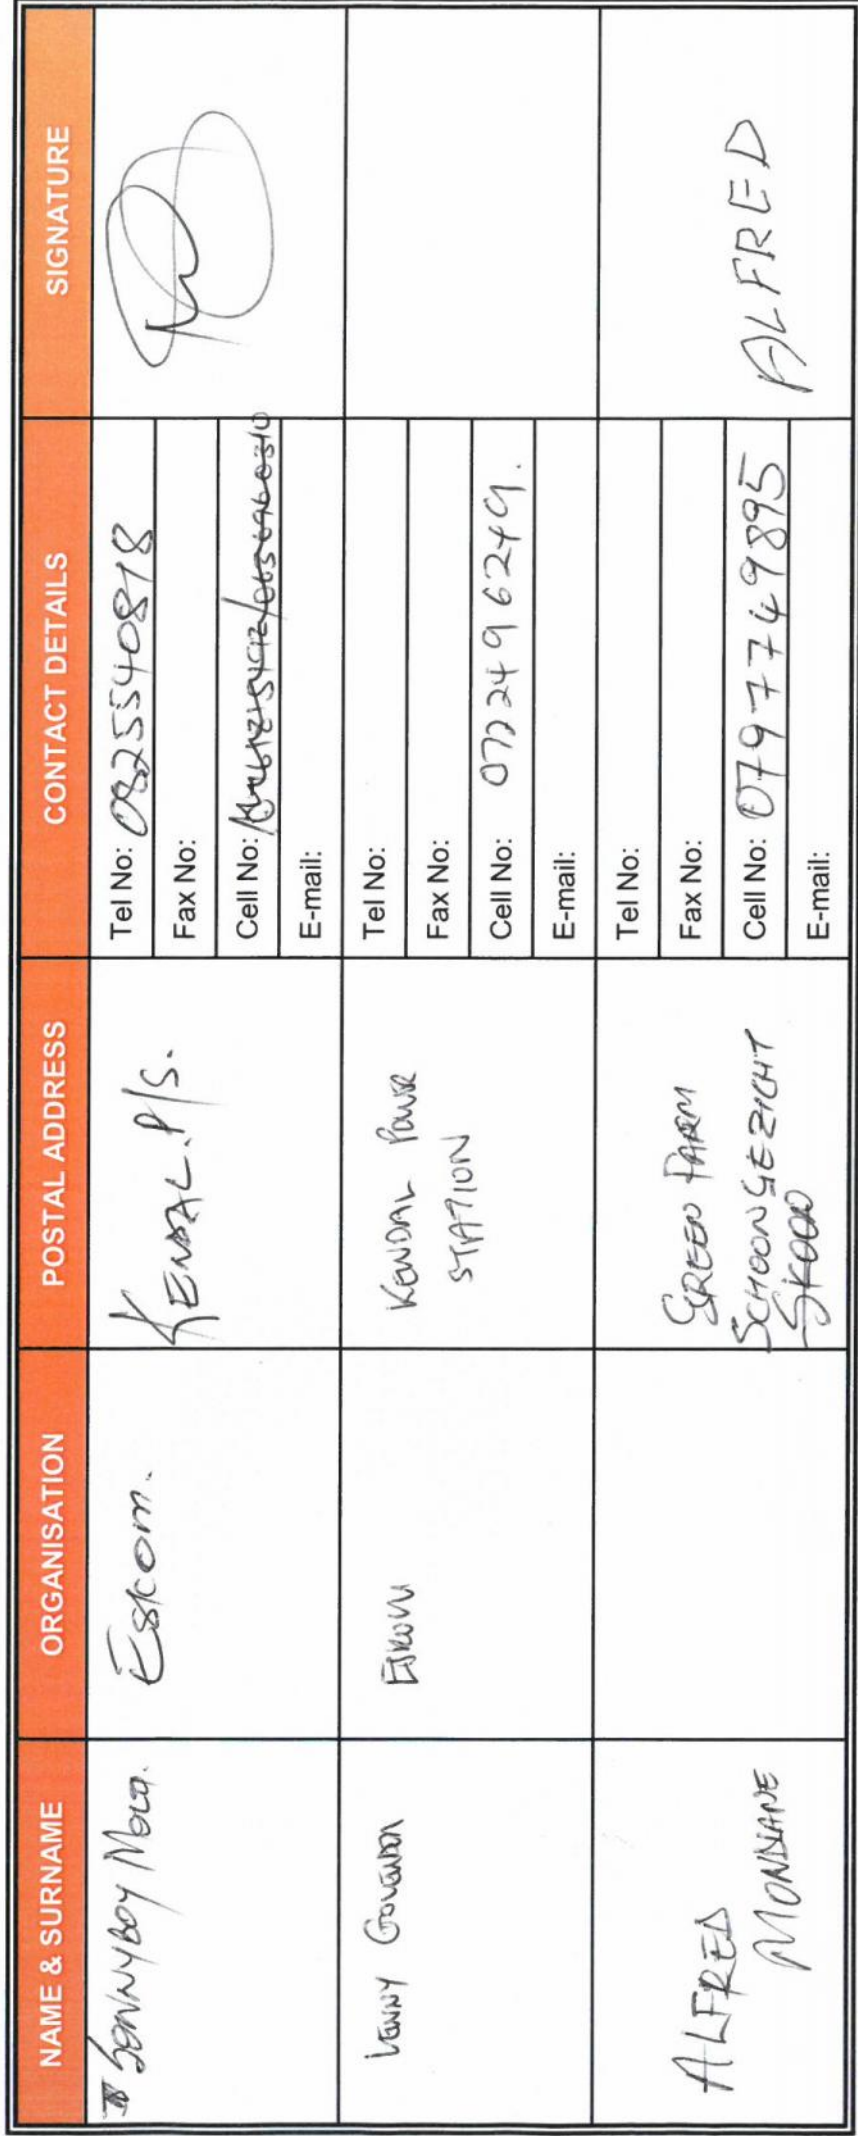 NAME & SURNAME
ORGANISATION
POSTAL ADDRESS
CONTACT DETAILS
SIGNATURE
SONNYBOY
Eskom.
KENDAL. P/S.
Tel No: 0825540818
Fax No:
Cell No:
E-mail:
LENNY GOVENDER
ESKOM
KENDAL POWER
STATION
Tel No:
Fax No:
Cell No: 0722496249.
E-mail:
ALFRED
MONDLANE
GREEN FARM
SCHOONGEZICHT
SKOOL
Tel No:
Fax No:
Cell No: 0797749895
E-mail:
ALFRED